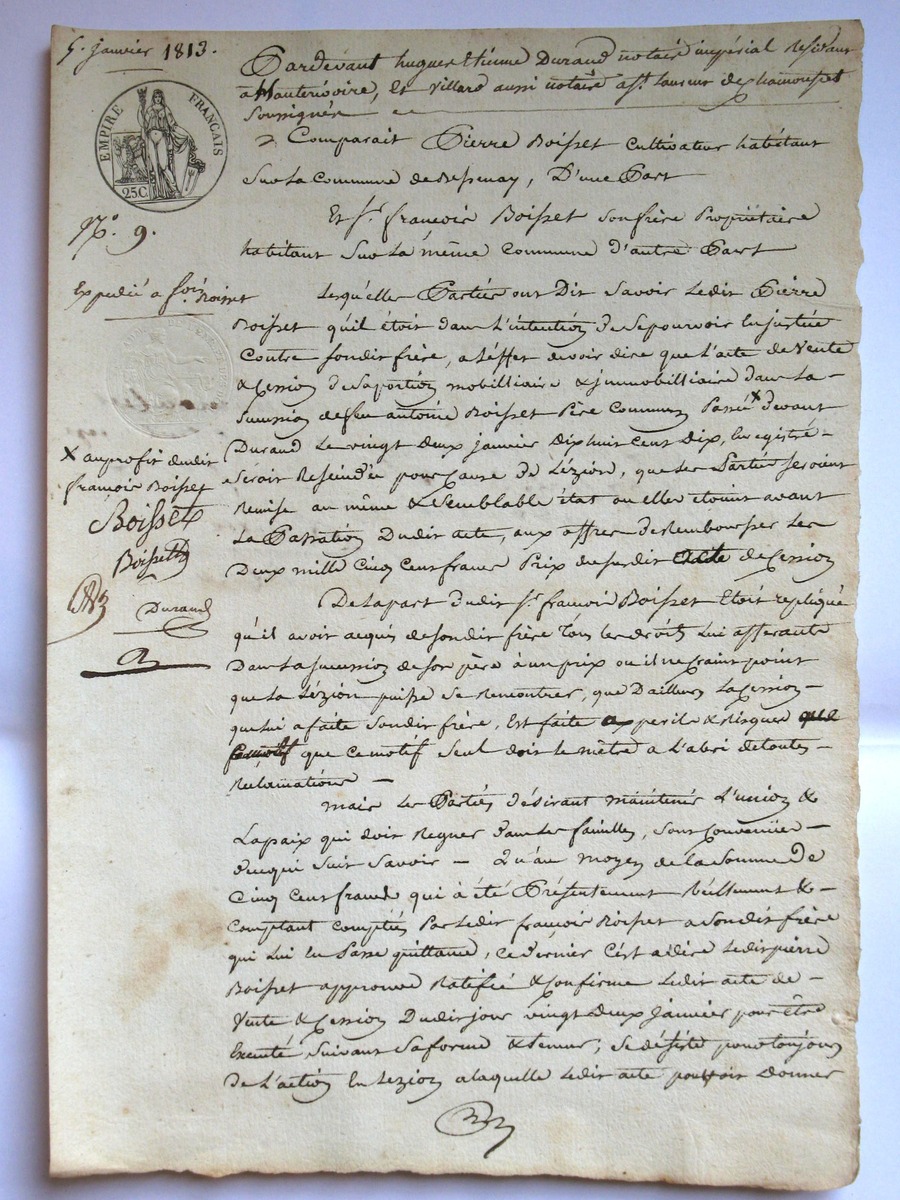 5. janvier 1813.
EMPIRE FRANÇAIS
25C
N.° 9.
Expedié a f.ois Boisset
X au profit dudit
françois Boisset
Boisset
Boisset
Durand
Pardevant hugues Etienne Durand notaire impérial Résidant
a hauterivoire, Et Villard aussi notaire a St. Laurent de chamousset
Soussignés
Comparait Pierre Boisset Cultivateur habitant
Sur La Commune de , D'une Part
Et Sr. françois Boisset Son frère Propriétaire
habitant Sur La même Commune d'autre Part
Lesquelles Parties ont Dit Savoir Ledit Pierre
Boisset qu'il étoit dans L'intention de Se pourvoir En justice
Contre Sondit frère, a L'effet de voir dire que L'acte de Vente
& Cession de Sa portion mobilliaire & immobilliaire dans La
Sucession de feu antoine Boisset Père Commun Passé X devant
Durand Le vingt deux janvier dix huit cent dix, Enregistré
Seroit Rescindée pour Cause de Lézion, que Les Parties seroient
Remise au même & Semblable état ou elles étoient avant
La Passation Dudit acte, aux offres de Rembourser Les
Deux mille Cinq Cent francs Prix du susdit acte de Cession
De La part dudit Sr. françois Boisset Etoit repliqué
qu'il avoit acquis de Sondit frère Tous les droits Lui afferants
Dans La sucession de son père à un prix ou il ne Craint point
que La Lézion puisse Se Rencontrer, que D'ailleurs La Cession
que lui a faite Sondit frère, Est faite a perils & Risques que
ce motif que ce motif Seul doit le mêtre a L'abri de toutes
Réclamations
Mais Les Parties désirant maintenir L'union &
La paix qui doit Regner dans les familles, Sont Convenües
de ce qui Suit Savoir — Qu'au moyen de la Somme de
Cinq Cent francs qui à été Présentement Réellement &
Comptant Comptée Par Ledit françois Boisset a Sondit frère
qui Lui En Passe quittance, Ce dernier C'est a dire Ledit pierre
Boisset approuve Ratifie & Confirme Ledit acte de
Vente & Cession Dudit jour vingt deux janvier pour être
Executé, Suivant Sa forme & teneur, Se désiste pour toujours
de L'action En Lezion a laquelle Ledit acte pouvoit Donner